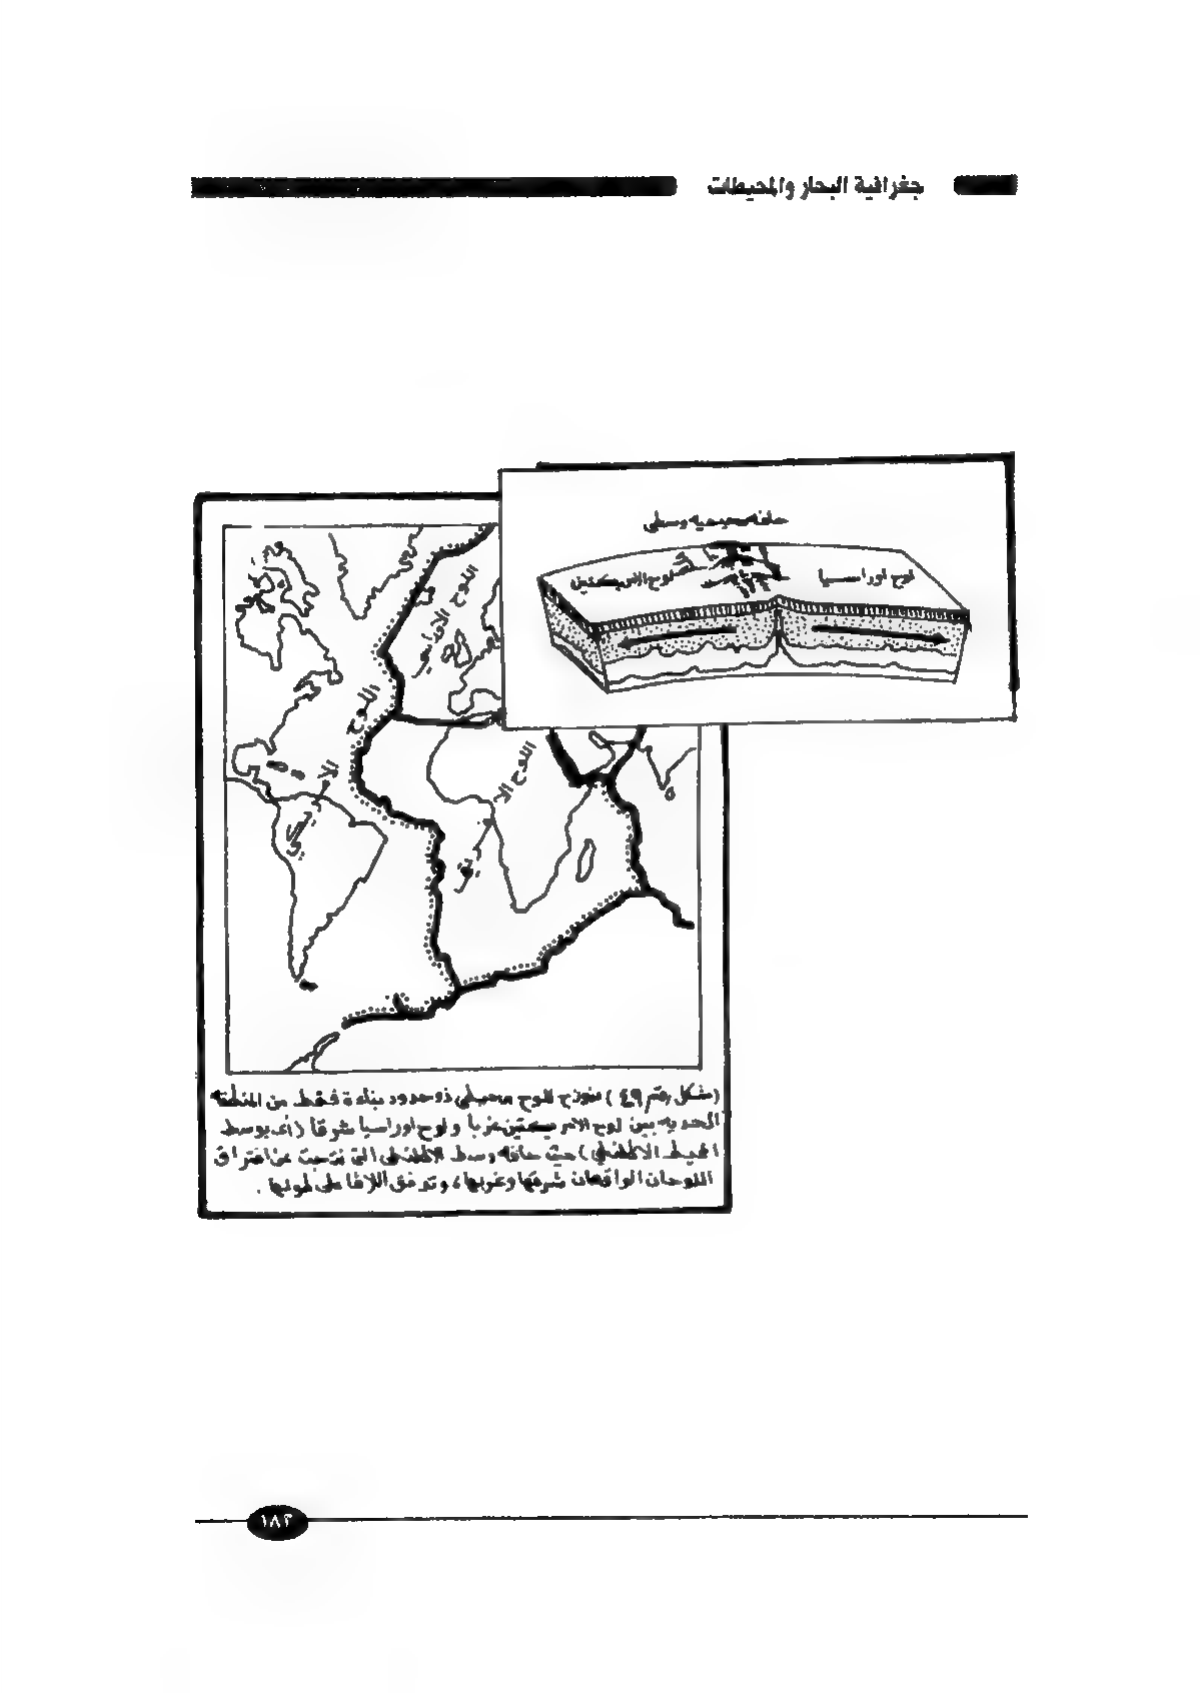 جغرافية البحار والمحيطات
حافه محيطيه وسطى
لوح اوراسيا
لوح الامريكتين
اللوح الاوراسى
اللوح
الا
مريكى
اللوح الا
فريقى
(شكل رقم ٤٩) نموذج للوح محيطى ذو حدود بناءة فقط من المنطقه
الحديه بين لوح الامريكتين غربا ولوح اوراسيا شرقا (أى بوسط
المحيط الاطلنطى) حيث حافه وسط الاطلنطى التى نتجت عن افتراق
اللوحان الواقعان شرقها وغربها، وتدفق اللافا على طولها.
١٨٣